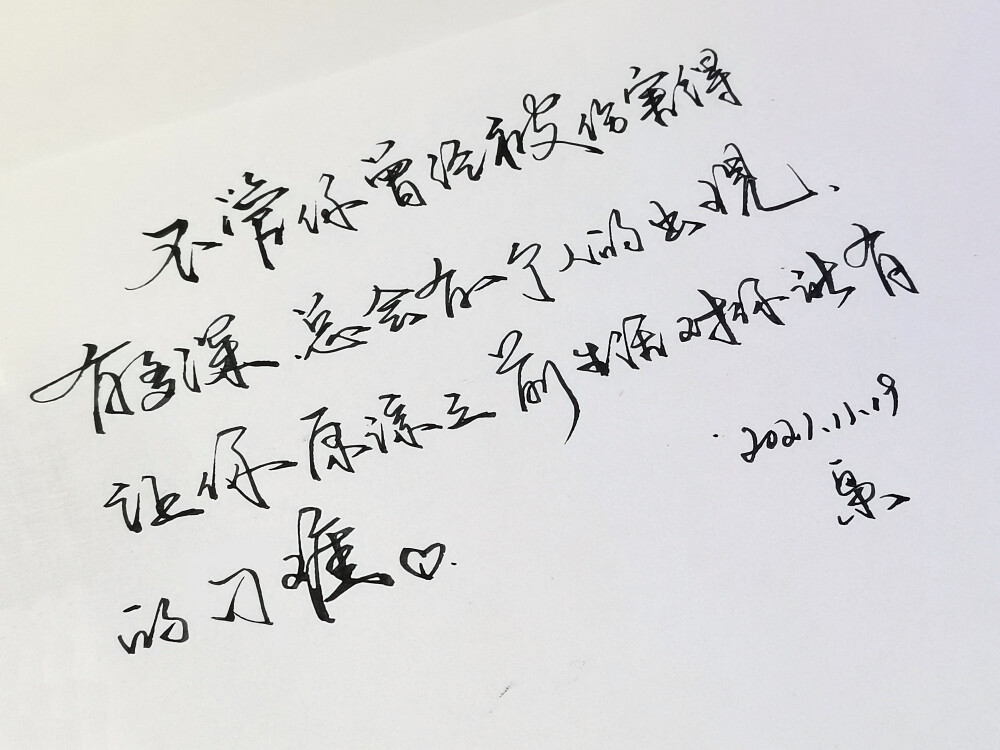 不管你曾经被伤害得
有多深.总会有一个人的出现.
让你原谅之前生活对你所有
的刁难♡.
2021.11.19